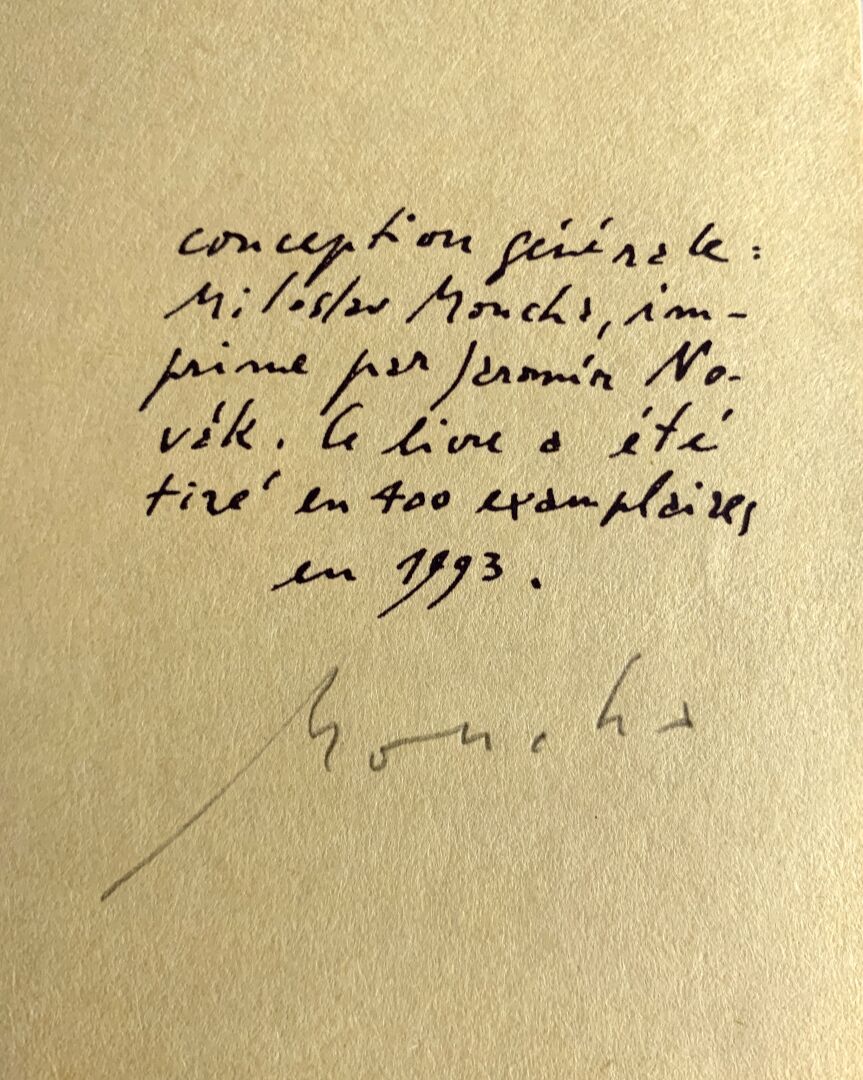 conception générale:
Miloslav Moucha, im-
prime par Jaromír No-
vák. Ce livre a été
tiré en 400 examplaires
en 1993.
Moucha